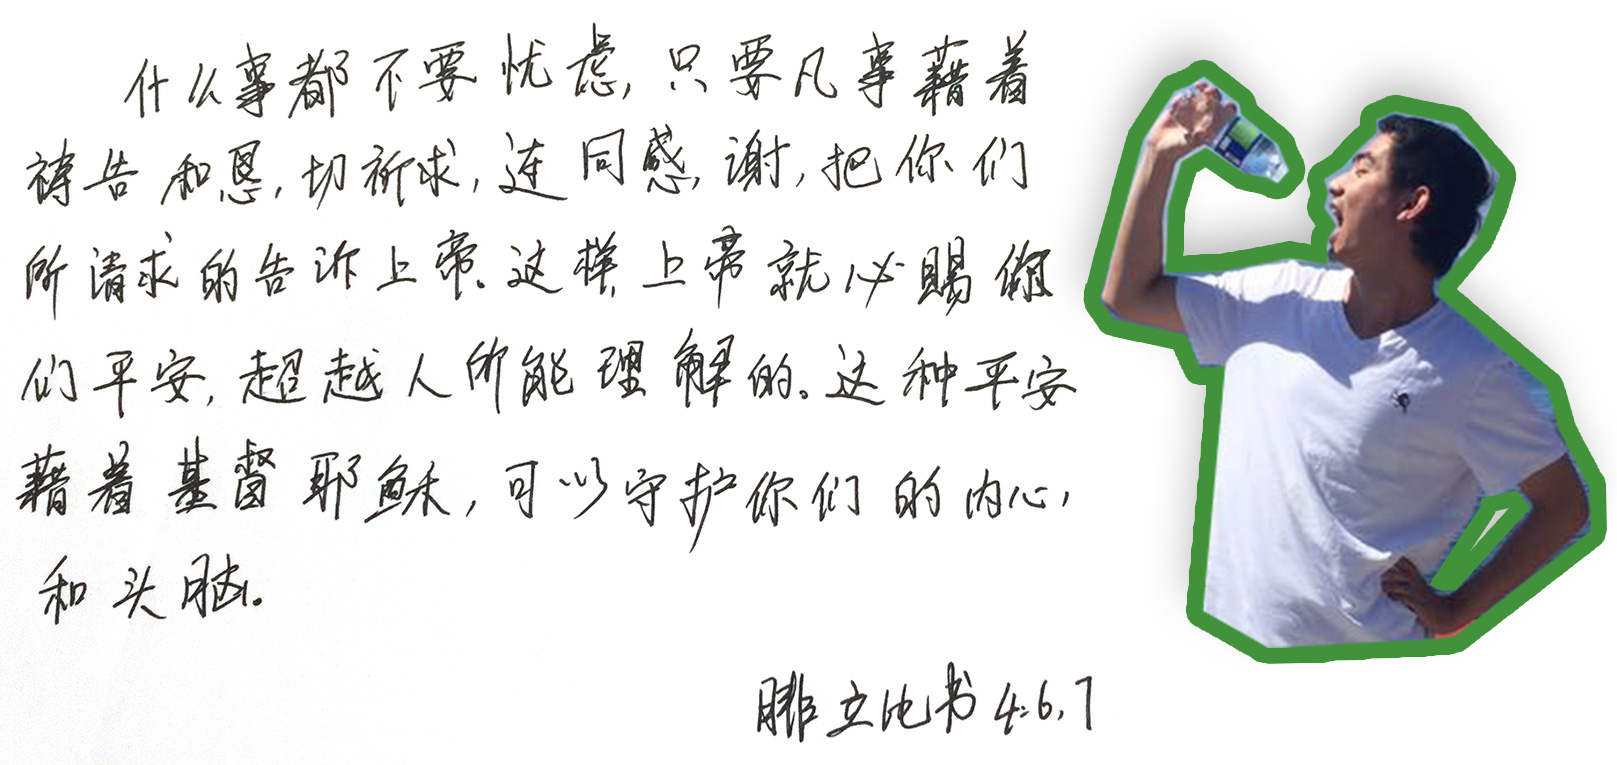 什么事都不要忧虑,只要凡事藉着
祷告和恩,切祈求,连同感,谢,把你们
所请求的告诉上帝。这样,上帝就必赐你
们平安,超越人所能理解的。这种平安
藉着基督耶稣,可以守护你们的内心,
和头脑。
腓立比书4:6,7